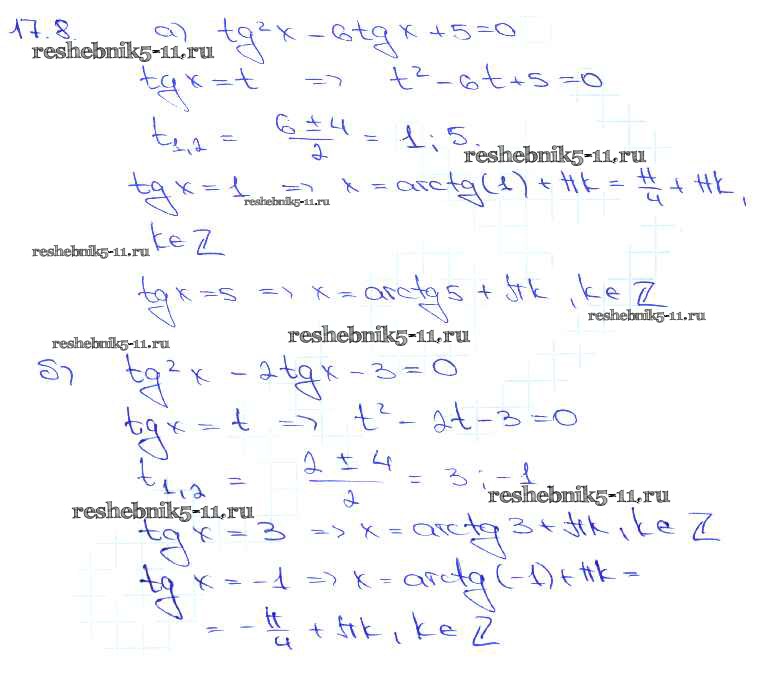 17.8. а) tg²x - 6tgx + 5 = 0
reshebnik5-11.ru
tgx = t => t² - 6t + 5 = 0
t₁,₂ = (6 ± 4)/2 = 1; 5.
reshebnik5-11.ru
tgx = 1 => x = arctg(1) + πk = π/4 + πk,
reshebnik5-11.ru
k∈Z
reshebnik5-11.ru
tgx = 5 => x = arctg5 + πk, k∈Z
reshebnik5-11.ru
reshebnik5-11.ru
reshebnik5-11.ru
б) tg²x - 2tgx - 3 = 0
tgx = t => t² - 2t - 3 = 0
t₁,₂ = (2 ± 4)/2 = 3; -1
reshebnik5-11.ru
reshebnik5-11.ru
tgx = 3 => x = arctg3 + πk, k∈Z
tgx = -1 => x = arctg(-1) + πk =
= -π/4 + πk, k∈Z